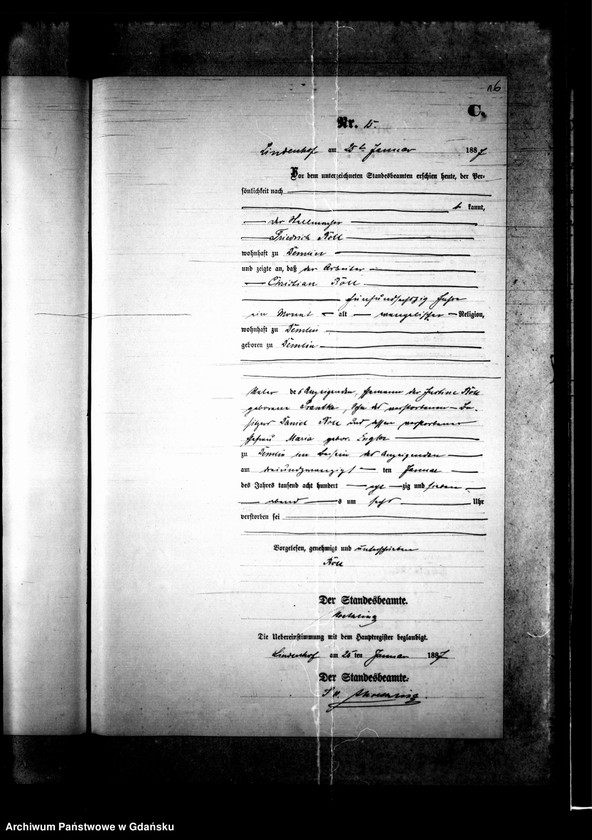 16
C.
Nr. 15.
Lindenhof am 25ten Januar 1887
Vor dem unterzeichneten Standesbeamten erschien heute, der Per-
sönlichkeit nach
kannt,
der
Friedrich Röll
wohnhaft zu Demlin
und zeigte an, daß der Arbeiter
Christian Röll
fünfundsechzig Jahre
ein Monat alt evangelischer Religion,
wohnhaft zu Demlin
geboren zu Demlin
Vater des Anzeigenden, Ehemann der Justine Röll
geborene Prantke, Sohn des verstorbenen Be-
sitzers Daniel Röll und dessen verstorbener
Ehefrau Maria geborene
zu Demlin im Beisein des Anzeigenden
am dreiundzwanzigsten Januar
des Jahres tausend acht hundert achtzig und sieben
Abends um sechs Uhr
verstorben sei
Vorgelesen, genehmigt und unterschrieben
Röll
Der Standesbeamte.
Die Uebereinstimmung mit dem Hauptregister beglaubigt.
Lindenhof am 25ten Januar 1887
Der Standesbeamte.
Archiwum Państwowe w Gdańsku